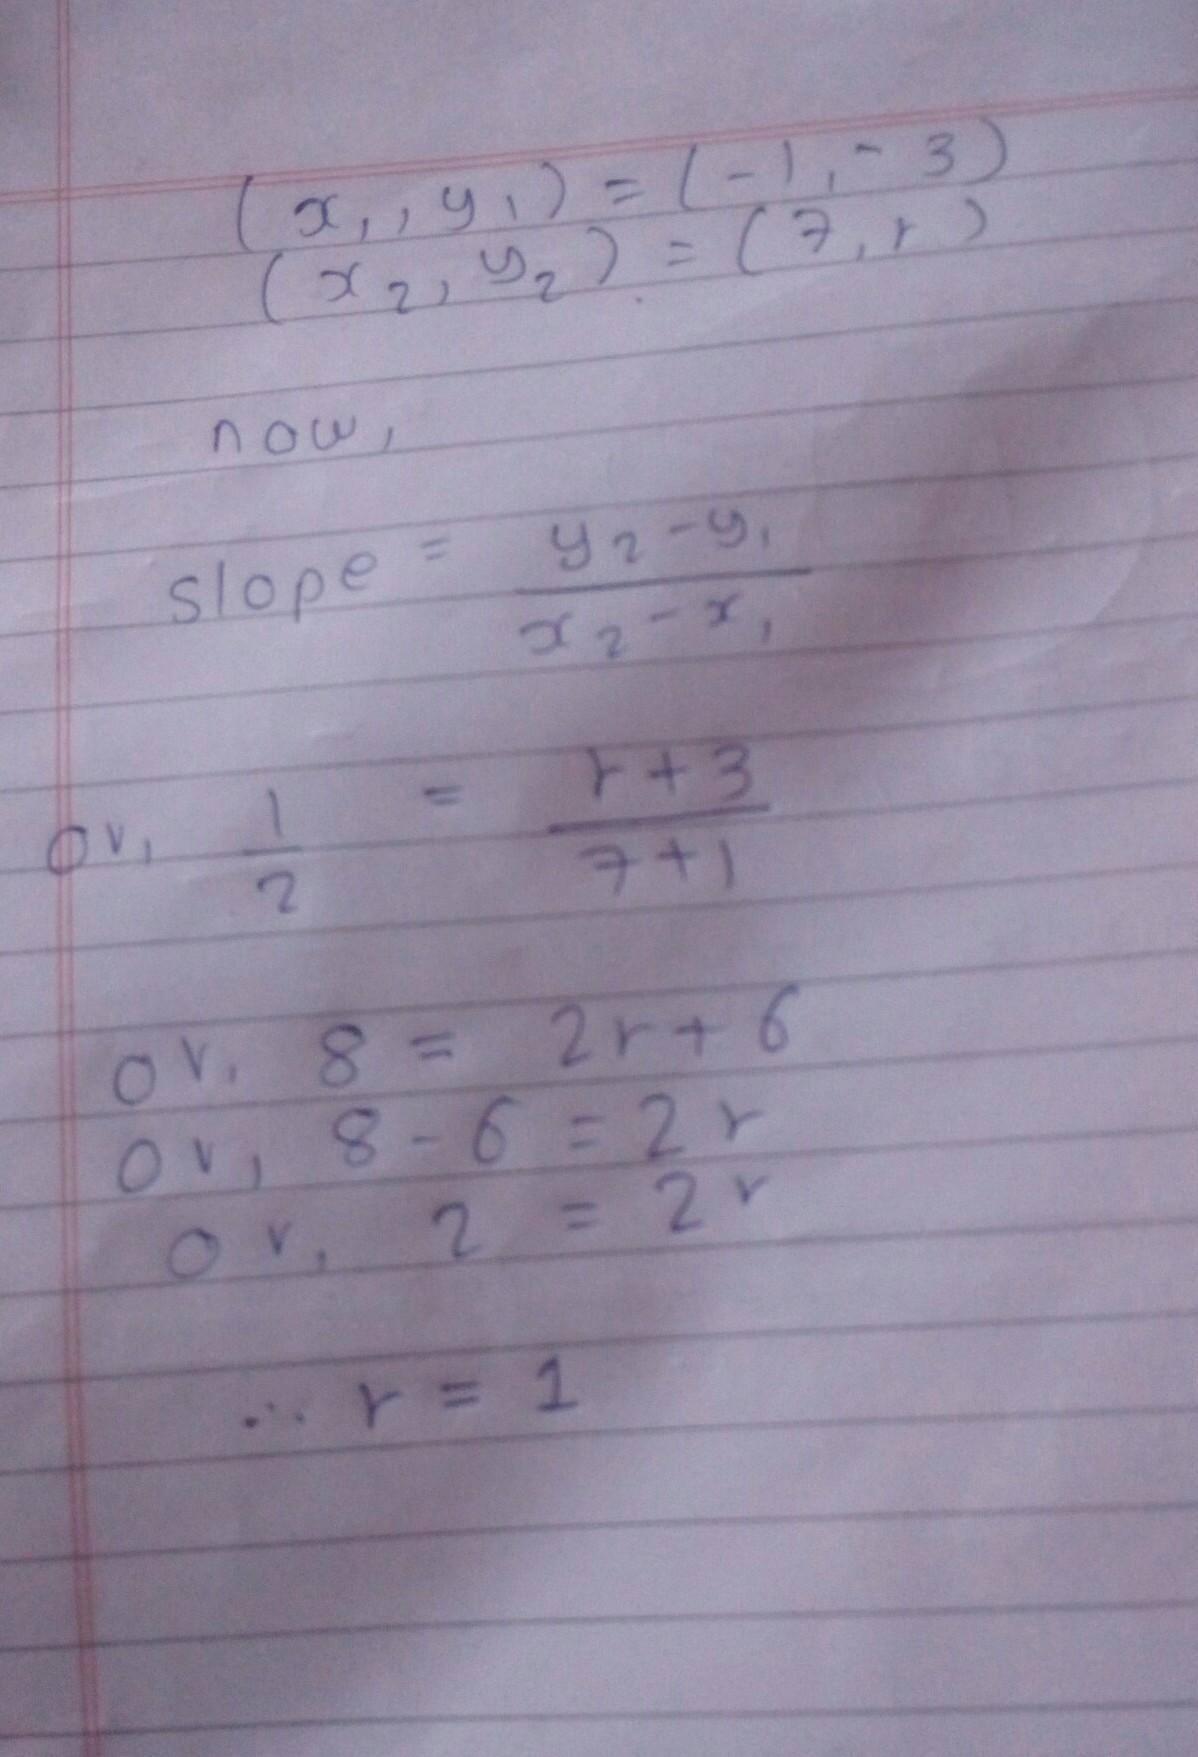 (x₁, y₁) = (-1, -3)
(x₂, y₂) = (7, r)
now,
slope = y₂ - y₁ / x₂ - x₁
or, 1/2 = r+3 / 7+1
or, 8 = 2r + 6
or, 8 - 6 = 2r
or, 2 = 2r
∴ r = 1